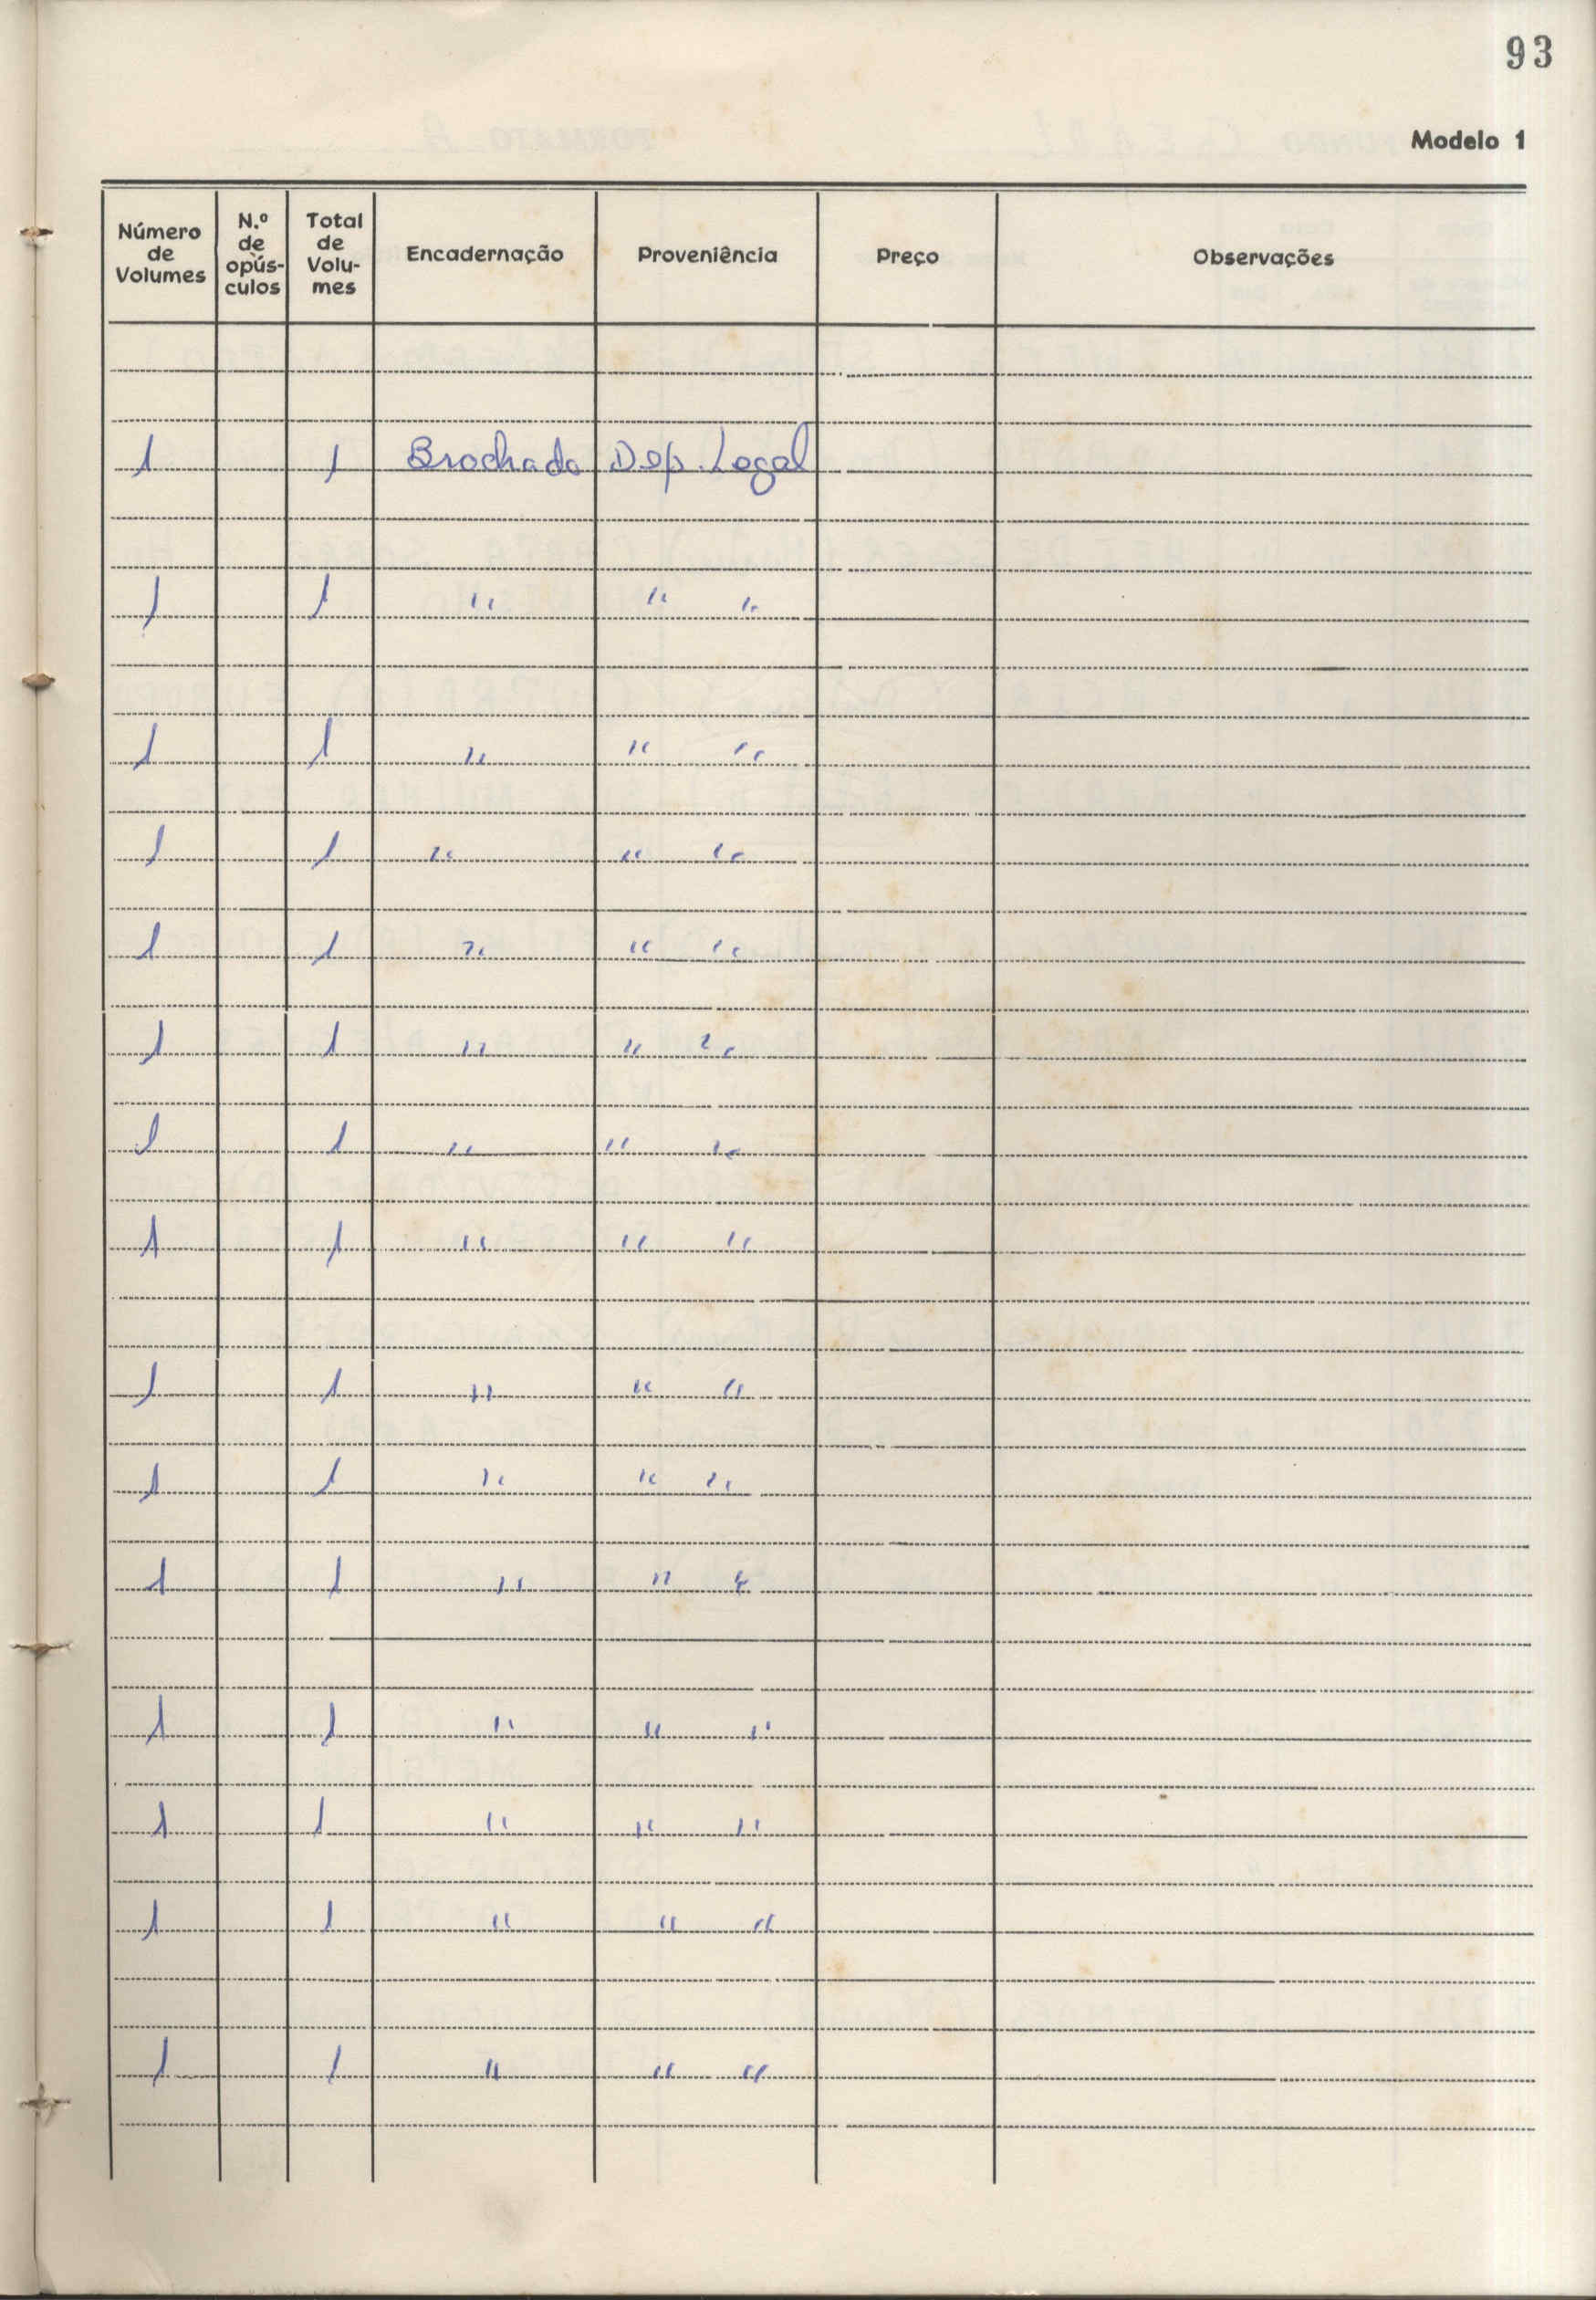 93
Modelo 1
Número de Volumes N.º de opús- culos Total de Volu- mes Encadernação Proveniência Preço Observações
1 1 Brochado Dep. Legal
1 1 " " "
1 1 " " "
1 1 " " "
1 1 " " "
1 1 " " "
1 1 " " "
1 1 " " "
1 1 " " "
1 1 " " "
1 1 " " "
1 1 " " "
1 1 " " "
1 1 " " "
1 1 " " "